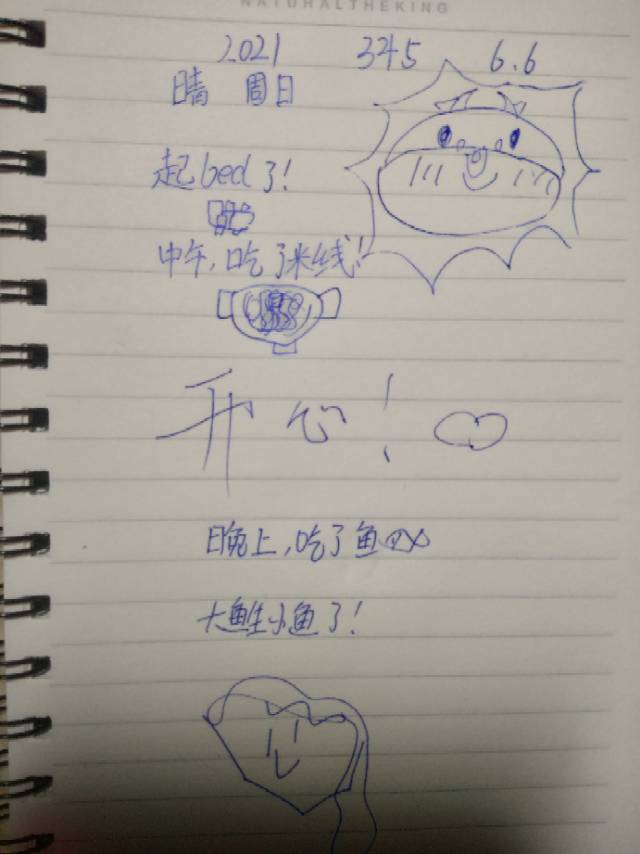 NATURALTHEKING
2021 345 6.6
晴 周日
起bed了!
中午,吃了米线!
开心!
晚上,吃了鱼
大鱼生小鱼了!